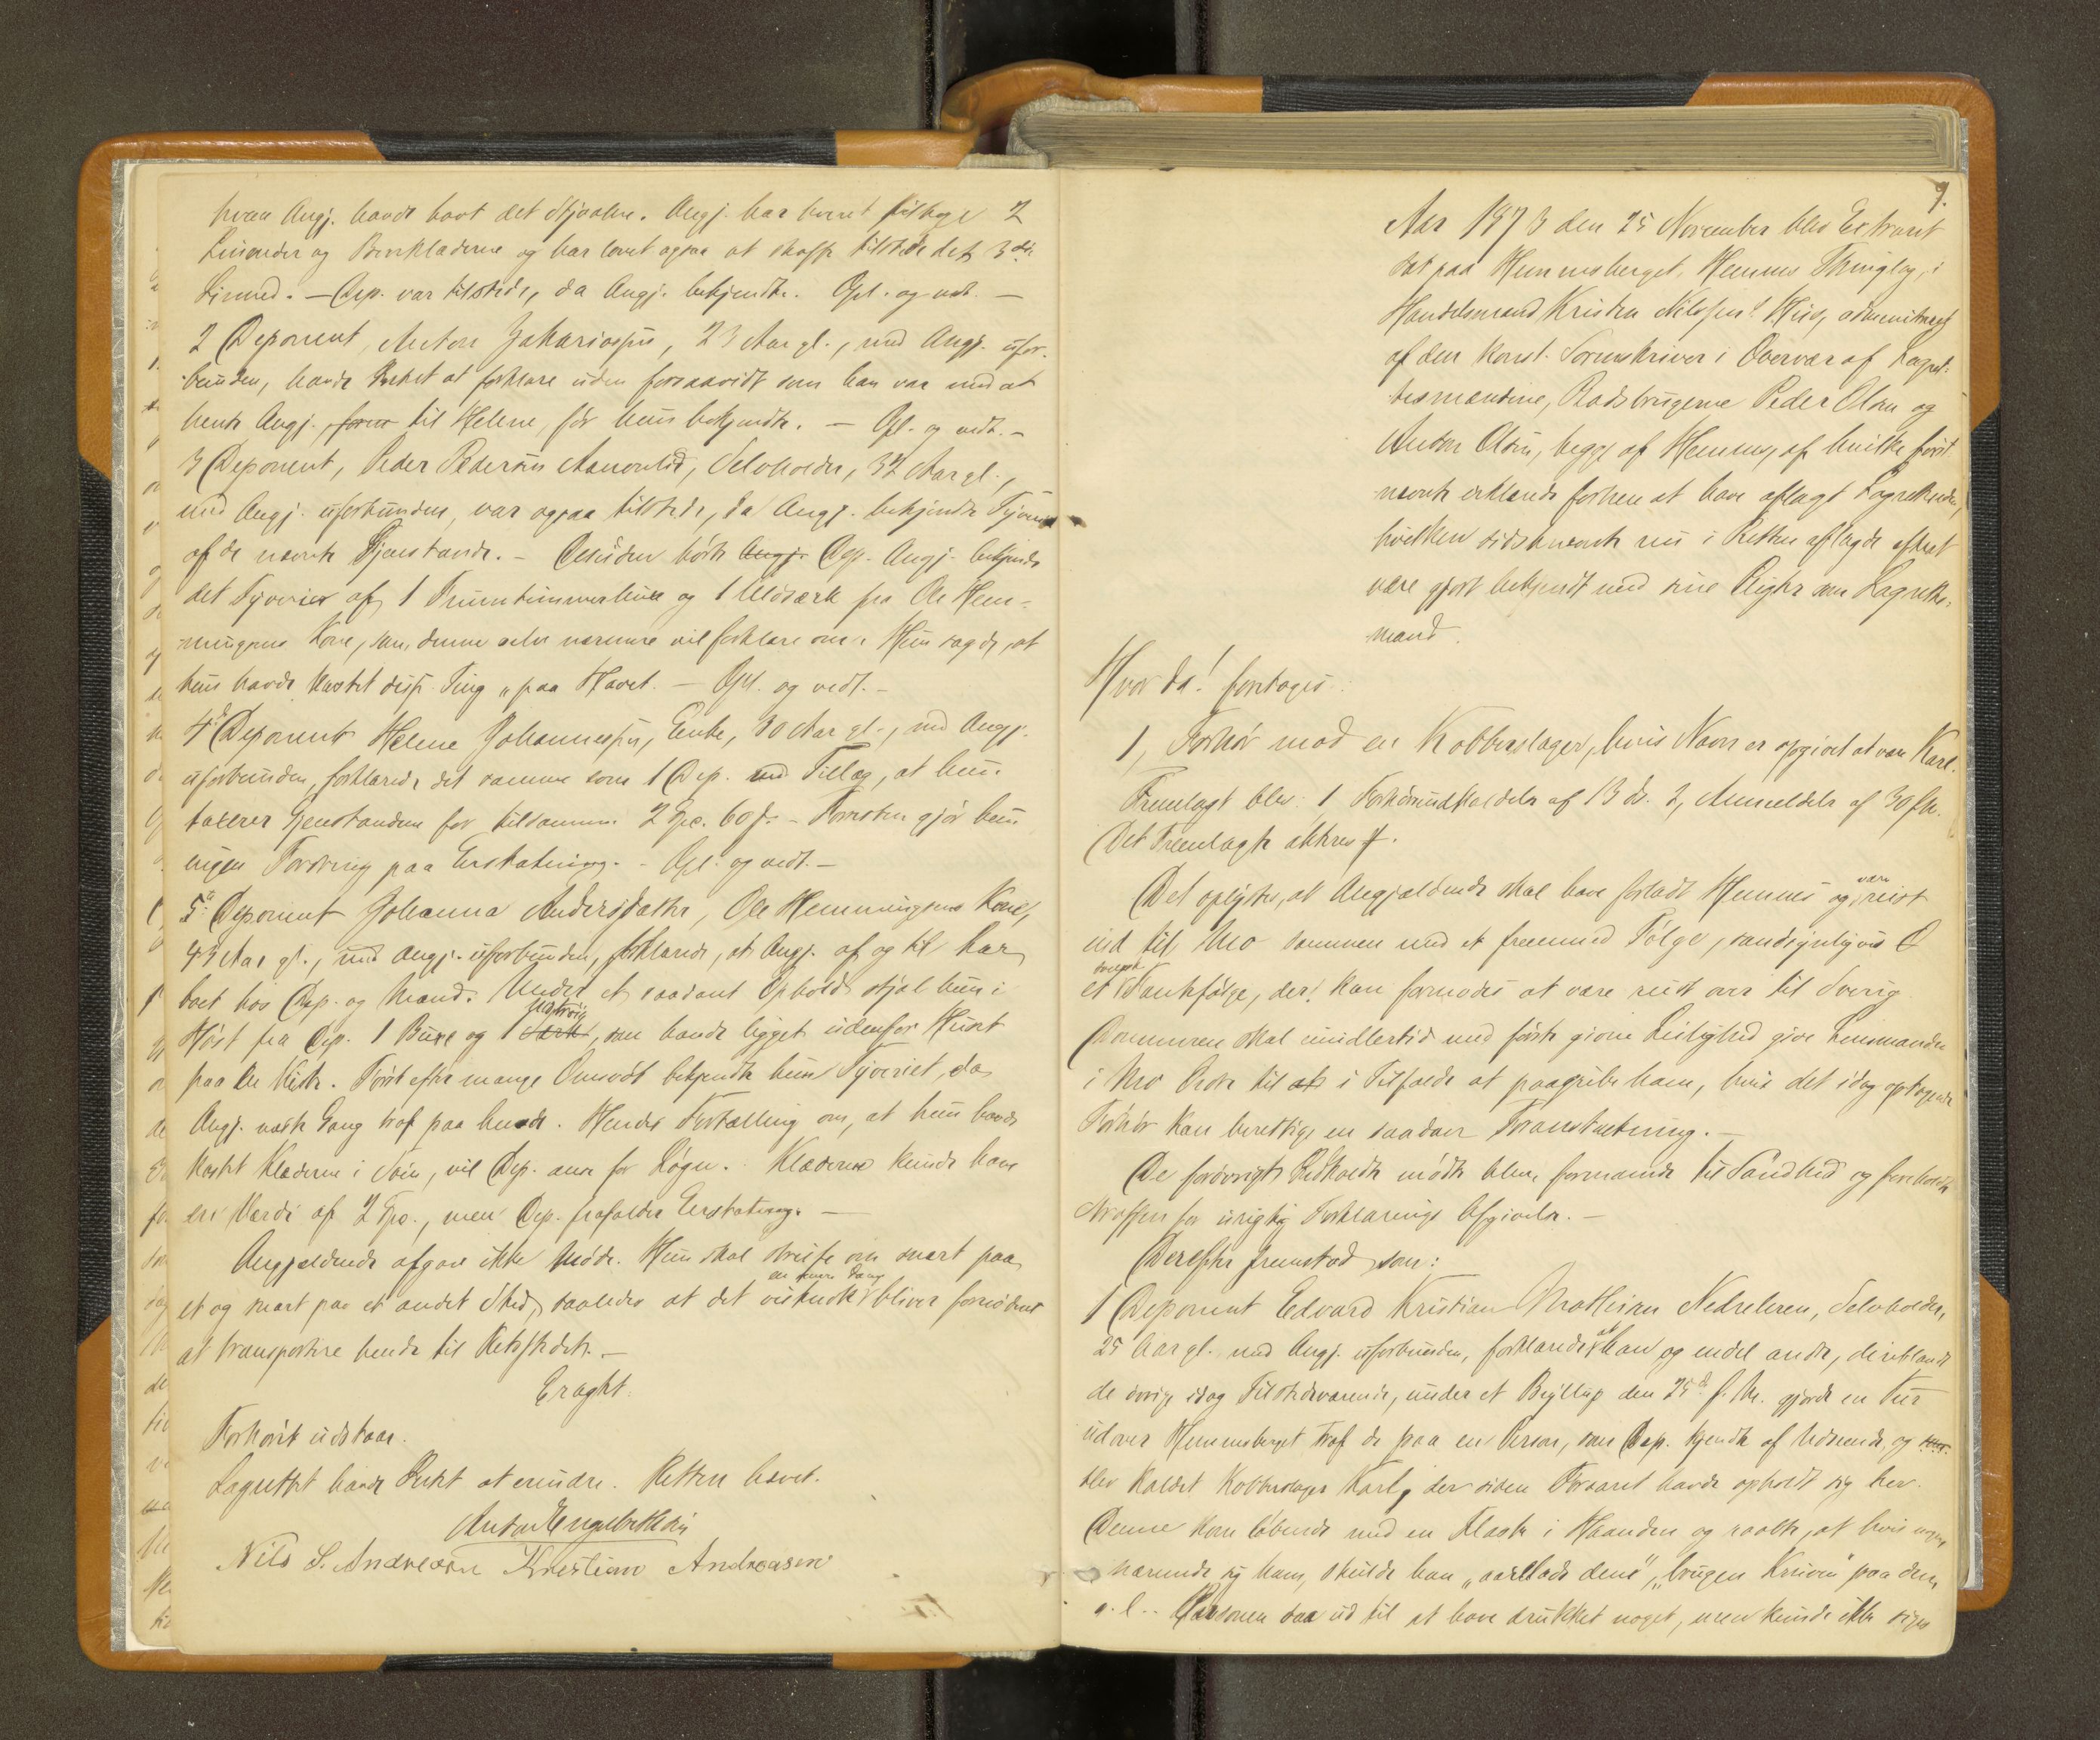 hvem Angj. havde havt det stjaalne. Angj. har havt tilbage 2
Linneder og Benklæderne og har lovet ogsaa at skaffe tilstede det 3die
Linned. — Dep. var tilstede, da Angj. bekjendte. Opl. og vedt. —
2 Deponent, Anton Zakariassen, 23 Aar gl., med Angj. ufor-
bunden, havde Intet at forklare uden forsaavidt som han var med at
hente Angj. til Helene, før hun bekjendte. — Opl. og vedt. —
3 Deponent, Peder Pedersen, Selveier, 32 Aar gl.,
med Angj. uforbunden, var ogsaa tilstede, da Angj. bekjendte Tyveri
af de nævnte Gjenstande. — Desuden hørte Angj. Dep. Angj. bekjende
det Tyveri af 1 og 1 fra Ole Hem-
mingsens Kone, som denne selv nærmere vil forklare om. Hun sagde, at
hun havde kastet disse Ting "paa Havet. — Opl. og vedt. —
4de Deponent Helene Johannesen, Enke, 30 Aar gl., med Angj.
uforbunden, forklarede det samme som 1 Dep. med Tillæg, at hun
taxerer Gjenstandene for tilsammen 2 Spd. 60 s. — Forresten gjør hun
ingen Fordring paa Erstatning. — Opl. og vedt. —
5te Deponent Johanna Andersdatter, Ole Hemmingsens Kone,
43 Aar gl., med Angj. uforbunden, forklarede, at Angj. af og til har
boet hos Dep. og Mand. Under et saadant Ophold stjal hun i
Høst fra Dep. 1 Buxe og 1, som havde ligget udenfor Huset
paa en Kiste. Først efter mange Omsvøb bekjendte hun Tyveriet, da
Angj. næste Gang traf paa hende. Hendes Fortælling om, at hun havde
kastet Klæderne i Søen, vil Dep. anse for Løgn. Klæderne kunde have
en Værdi af 2 Spd., men Dep. frafalder Erstatning. —
Angjældende afgav ikke Møde. Hun skal streife om snart paa
en anden Gang
et og snart paa et andet Sted, saaledes at det bliver fornødent
at transportere hende til Retsstedet. —
Eragtet:
Forhøret udstaar.
Lagrettet havde Intet at erindre. Retten hævet.
Anton Engebrethsen
Nils S. Andreasen Kristian Andreasen
9.
Aar 1873 den 25 November blev Extraret
sat paa Hemnesberget, Hemnes Thinglag, i
Handelsmand Kristen Nilsens Hus, administreret
af den konst. Sorenskriver i Overvær af Lagret-
tesmændene, Gaardbrugerne Peder Olsen og
Anton Olsen, begge af Hemnes, af hvilke først-
nævnte erklærede forhen at have aflagt Lagretteeden,
hvilken sidstnævnte nu i Retten aflagde efter at
være gjort bekjendt med sine Pligter som Lagrettes-
mand.
Hvor da! foretoges:
1, Forhør mod en Kobberslager, hvis Navn er opgivet at være Karl.
Fremlagt blev: 1 Forhørsudholdelse af 13 ds. 2, Anmeldelse af 30 f. M.
Det Fremlagte akteres #.
Det oplystes, at Angjældende skal have forladt Hemnes og være reist
ind til Mo sammen med et fremmed Følge, sandsynligvis
svensk
et Tanterfølge, der kan formodes at være reist over til Sverig.
Dommeren skal imidlertid med første givne Leilighed give Lensmanden
i Mo Ordre til i Tilfælde at paagribe ham, hvis det idag optagende
Forhør kan berettige en saadan Foranstaltning. —
De forøvrigt Indkaldte mødte blev formanede til Sandhed og foreholdt
Straffen for urigtig Forklarings Afgivelse. —
Derefter fremstod som:
1 Deponent Edvard Kristian Mathisen Nedreleren, Selveier,
25 Aar gl. med Angj. uforbunden, forklarede at han og endel andre, deriblandt
de øvrige idag Tilstedeværende, under et Bryllup den 25de f. M. gjorde en Tur
udover Hemnesberget traf de paa en Person, som Dep. kjendte af Udseende og
blev kaldet Kobberslager Karl, der siden Foraaret havde opholdt sig her.
Denne kom løbende med en Flaske i Haanden og raabte, at hvis nogen
nærmede sig ham, skulde han "aarelade dem", "bruge Kniven" paa dem,
o. l. — Personen saa ud til at have drukket noget, men kunde ikke siges